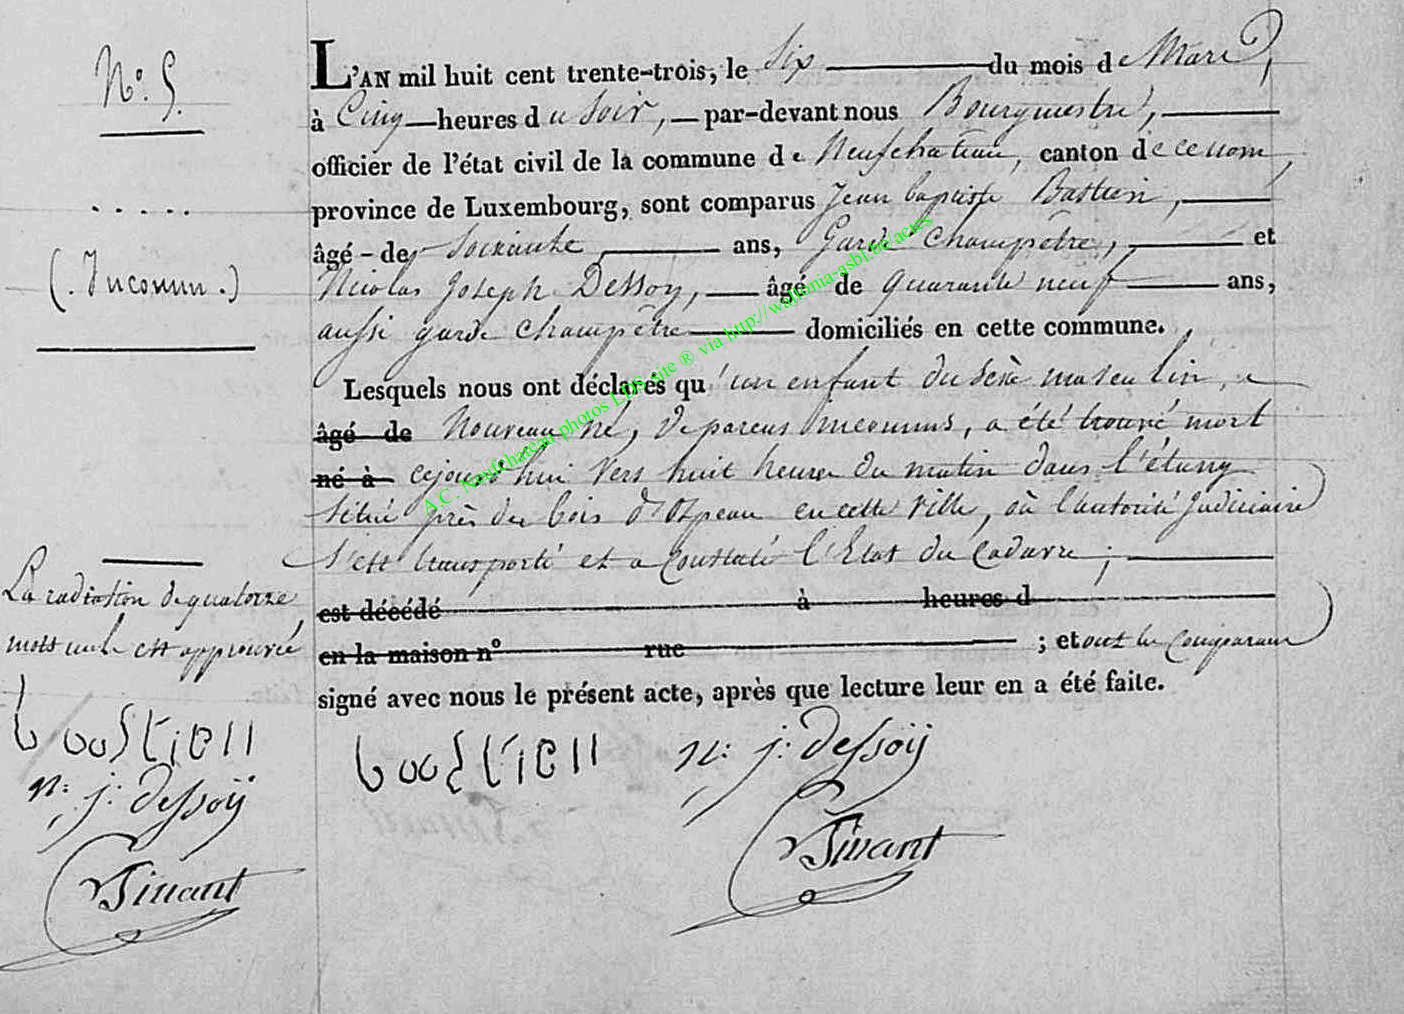 N.° 5.
. . . . .
(. Inconnu .)
La radiation de quatorze
mots nuls est approuvée
bastien
n: j: dessoÿ
Tinant
L'AN mil huit cent trente-trois, le Six du mois de Mars,
à Cinq heures du soir, par-devant nous Bourgmestre,
officier de l'état civil de la commune de Neufchateau, canton de ce nom,
province de Luxembourg, sont comparus Jean baptiste Bastien,
âgé de soixante ans, Garde champêtre, et
Nicolas Joseph Dessoy, âgé de quarante neuf ans,
aussi garde champêtre domiciliés en cette commune.
Lesquels nous ont déclarés qu'un enfant du sexe masculin,
âgé de Nouveau né, de parens inconnus, a été trouvé mort
né à cejourd'hui vers huit heures du matin dans l'étang
situé près du bois d'Ospeau en cette ville, où l'autorité Judiciaire
s'est transporté et a constaté l'Etat du Cadavre ;
est décédé à heures d
en la maison n° rue ; et ont les comparans
signé avec nous le présent acte, après que lecture leur en a été faite.
bastien n: j: dessoÿ
Tinant
A.C. Neufchateau photos LDS site ® via http://wallonia-asbl.be/actes